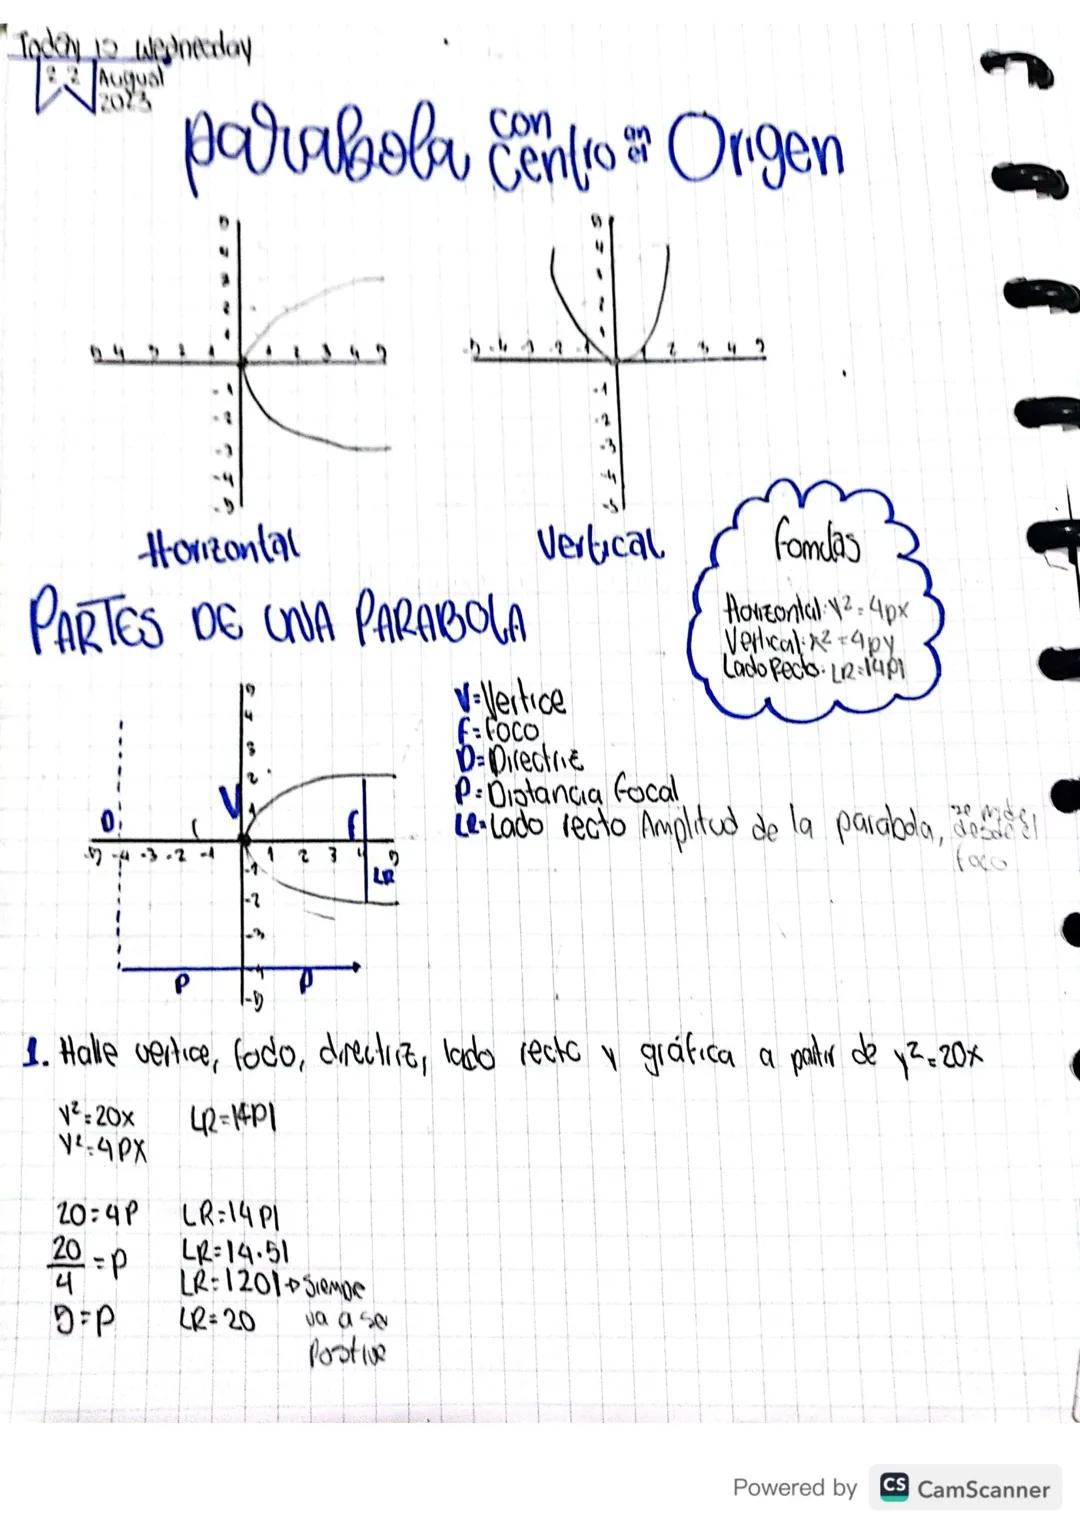 Today is Wednesday
22 August
2023
parabola con centro en el Origen
5 4 3 2 1
5 4 3 2 1 1 2 3 4 5
-1 -2 -3 -4 -5
5 4 3 2 1
-5 -4 -3 -2 -1 1 2 3 4 5
-1 -2 -3 -4 -5
Horizontal
Vertical
Horizontal: y² = 4px
Vertical: x² = 4py
Lado Recto: LR=|4p|
PARTES DE UNA PARABOLA
V=Vertice
F=foco
D=Directriz
P=Distancia focal
LR=Lado recto Amplitud de la parabola, se mide desde el foco
5 4 3 2 1
D V F
-5 -4 -3 -2 -1 1 2 3 4 5
LR
-1 -2 -3 -4 -5
P P
1. Halle vertice, fodo, directriz, lado recto y gráfica a partir de y²=20x
y²=20x LR=|4P|
y²=4PX
20=4P LR=|4P|
20/4=P LR=|4·5|
LR=|20|→siempre
5=P LR=20 va a ser
Positive
Powered by CS CamScanner